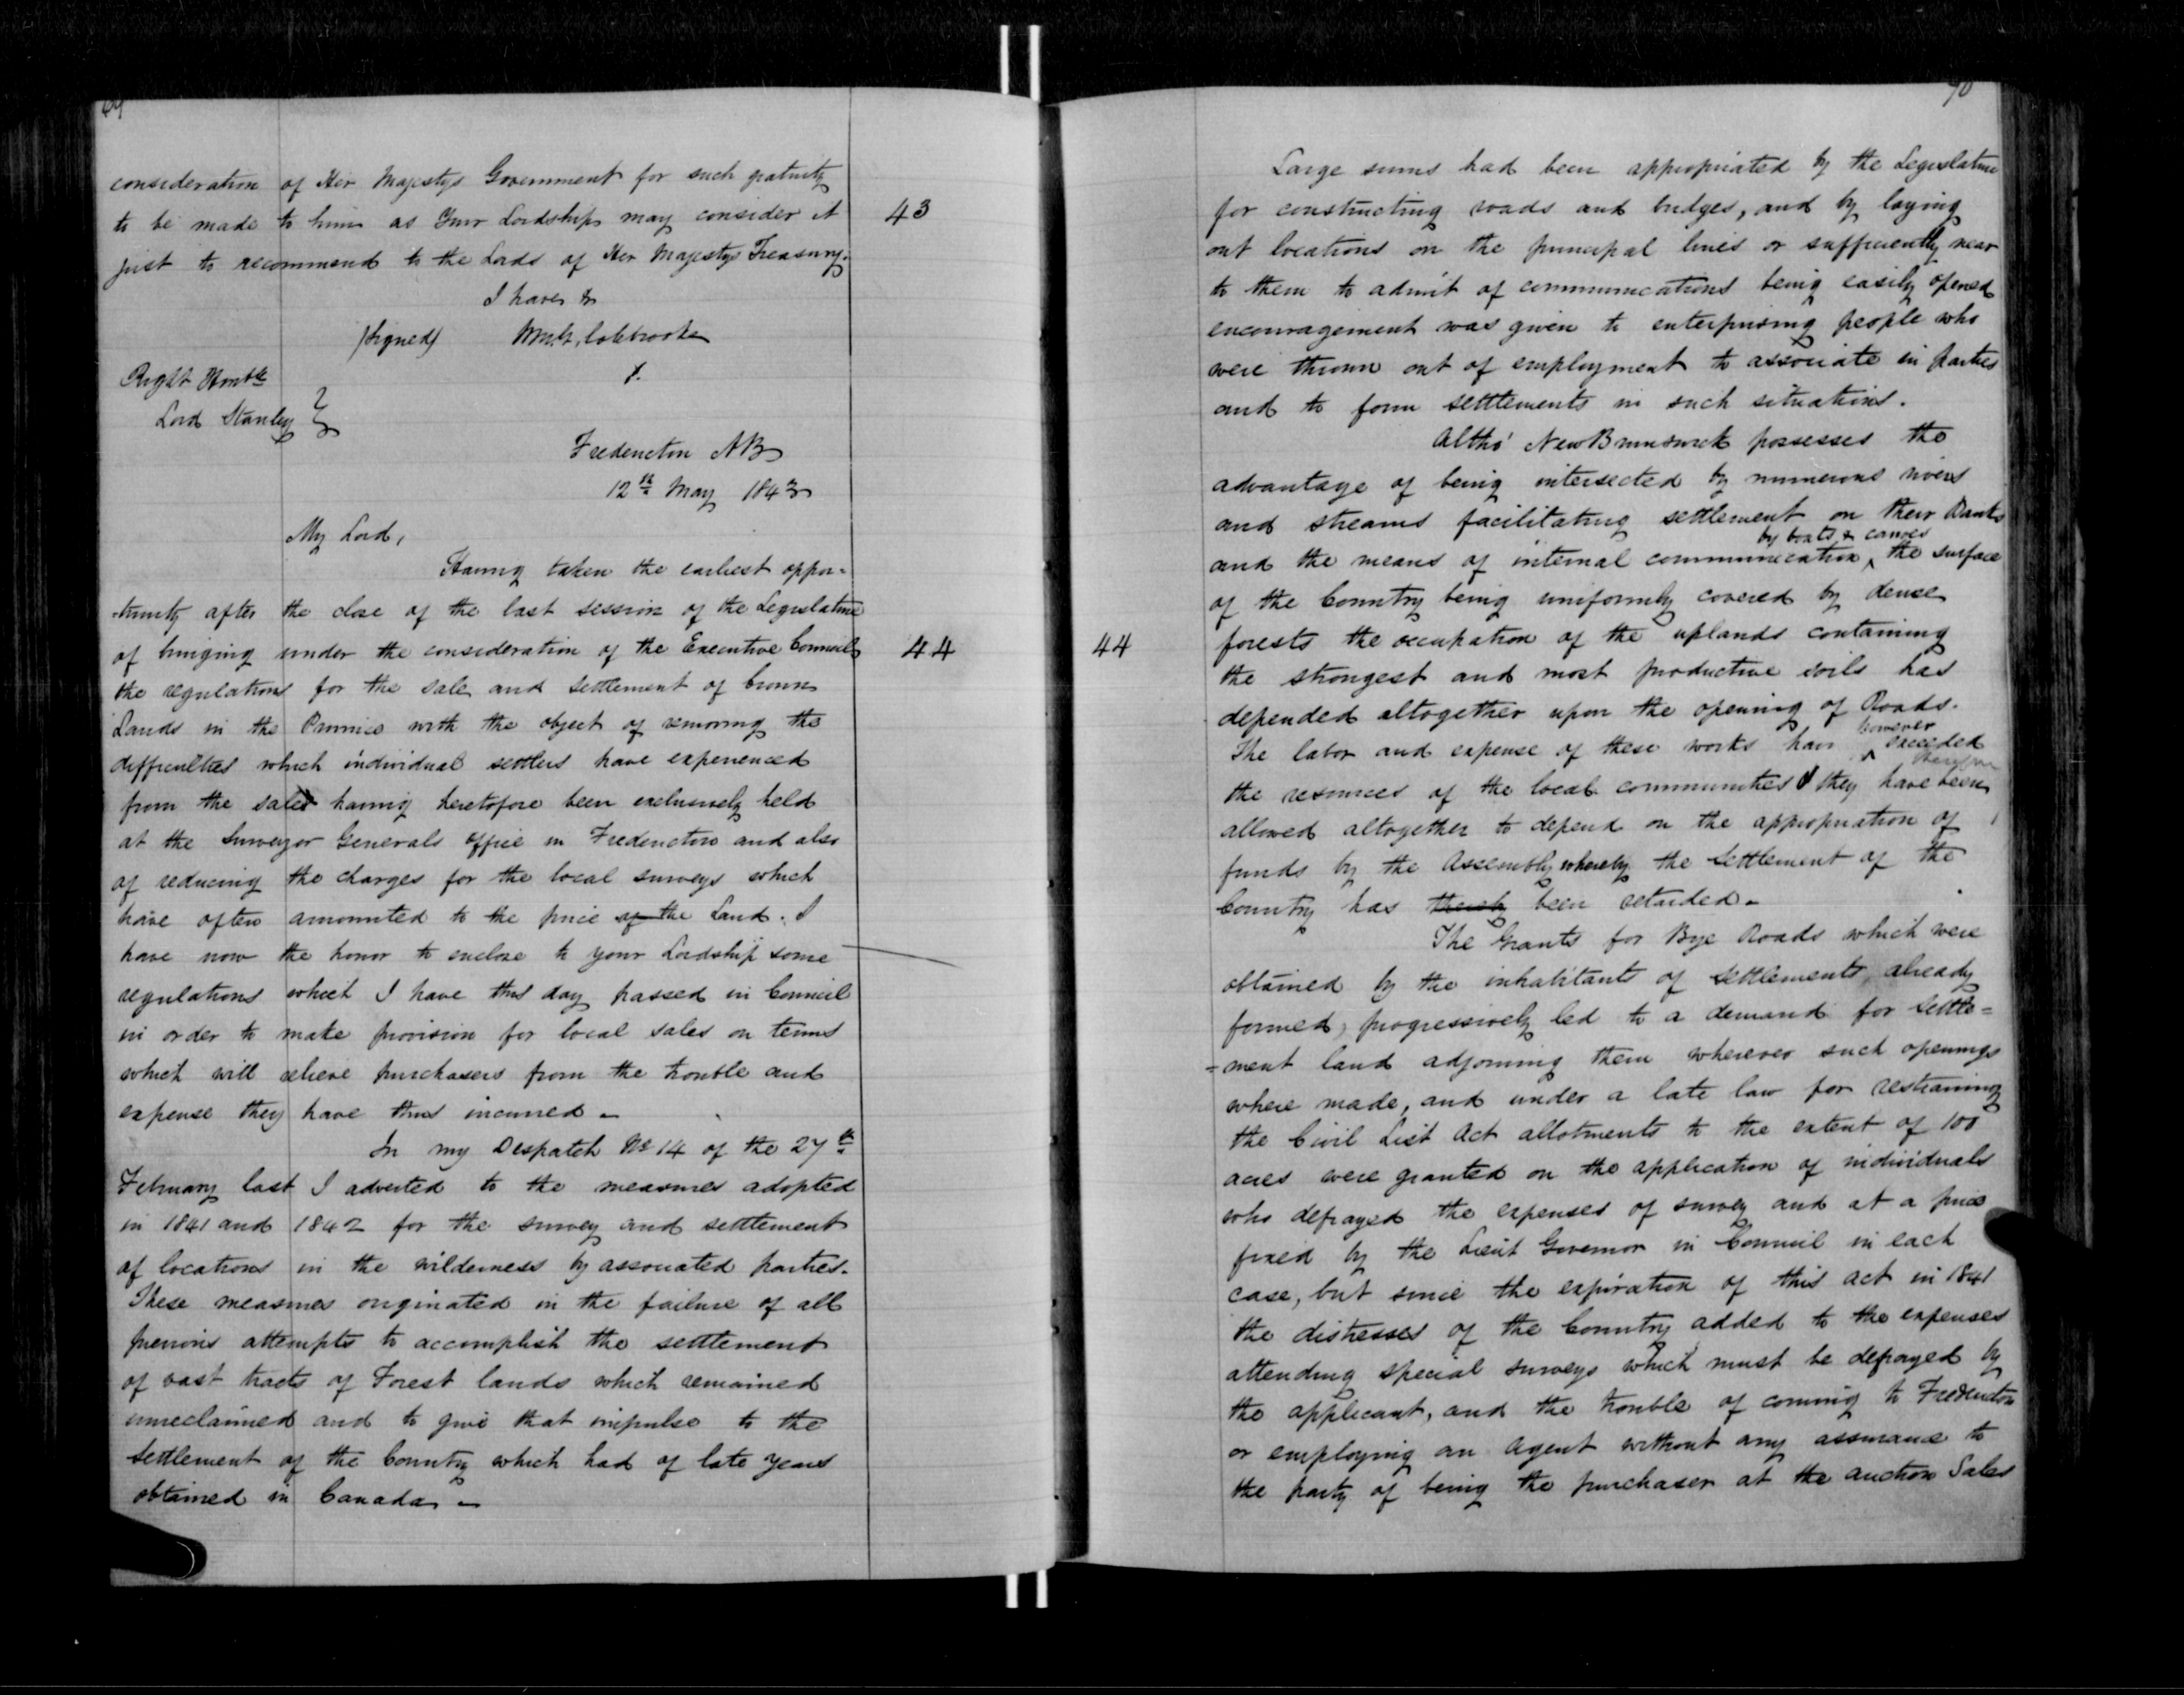 consideration of Her Majestys Government for such gratuity
to be made to him as Your Lordship may consider it
43
just to recommend to the Lords of Her Majestys Treasury.
I have &
(Signed) Wm. G. Colebrooke
Right Honble
Lord Stanley
Fredericton NB
12th May 1843
My Lord,
Having taken the earliest oppor-
-tunity after the close of the last session of the Legislature
of bringing under the consideration of the Executive Council
44
the regulations for the sale and settlement of Crown
Lands in the Province with the object of removing the
difficulties which individual settlers have experienced
from the sales having heretofore been exclusively held
at the Surveyor Generals Office in Fredericton and also
of reducing the charges for the local surveys which
have often amounted to the price of the Land. I
have now the honor to enclose to your Lordship some
regulations which I have this day passed in Council
in order to make provision for local sales on terms
which will relieve purchasers from the trouble and
expense they have thus incurred -
In my Despatch No 14 of the 27th
February last I adverted to the measures adopted
in 1841 and 1842 for the survey and settlement
of locations in the wilderness by associated parties.
These measures originated in the failure of all
previous attempts to accomplish the settlement
of vast tracts of Forest lands which remained
unreclaimed and to give that impulse to the
settlement of the Country which had of late years
obtained in Canada -
90
Large sums had been appropriated by the Legislature
for constructing roads and bridges, and by laying
out locations on the principal lines or sufficiently near
to them to admit of communications being easily opened
encouragement was given to enterprising people who
were thrown out of employment to associate in parties
and to form settlements in such situations.
Altho' New Brunswick possesses the
advantage of being intersected by numerous rivers
and streams facilitating settlement on their Banks
by boats & canoes
and the means of internal communication, the surface
of the Country being uniformly covered by dense
44
forests the occupation of the uplands containing
the strongest and most productive soils has
depended altogether upon the opening of Roads.
however
The labor and expense of these works have exceeded
therefore
the resources of the local communities & they have been
allowed altogether to depend on the appropriation of
funds by the Assembly whereby the settlement of the
Country has thereby been retarded -
The Grants for Bye Roads which were
obtained by the inhabitants of settlements already
formed, progressively led to a demand for settle=
=ment land adjoining them wherever such openings
where made, and under a late law for restraining
the Civil List Act allotments to the extent of 100
acres were granted on the application of individuals
who defrayed the expenses of survey and at a price
fixed by the Lieut Governor in Council in each
case, but since the expiration of this act in 1841
the distresses of the Country added to the expenses
attending special surveys which must be defrayed by
the applicant, and the trouble of coming to Fredericton
or employing an agent without any assurance to
the party of being the purchaser at the auction Sales